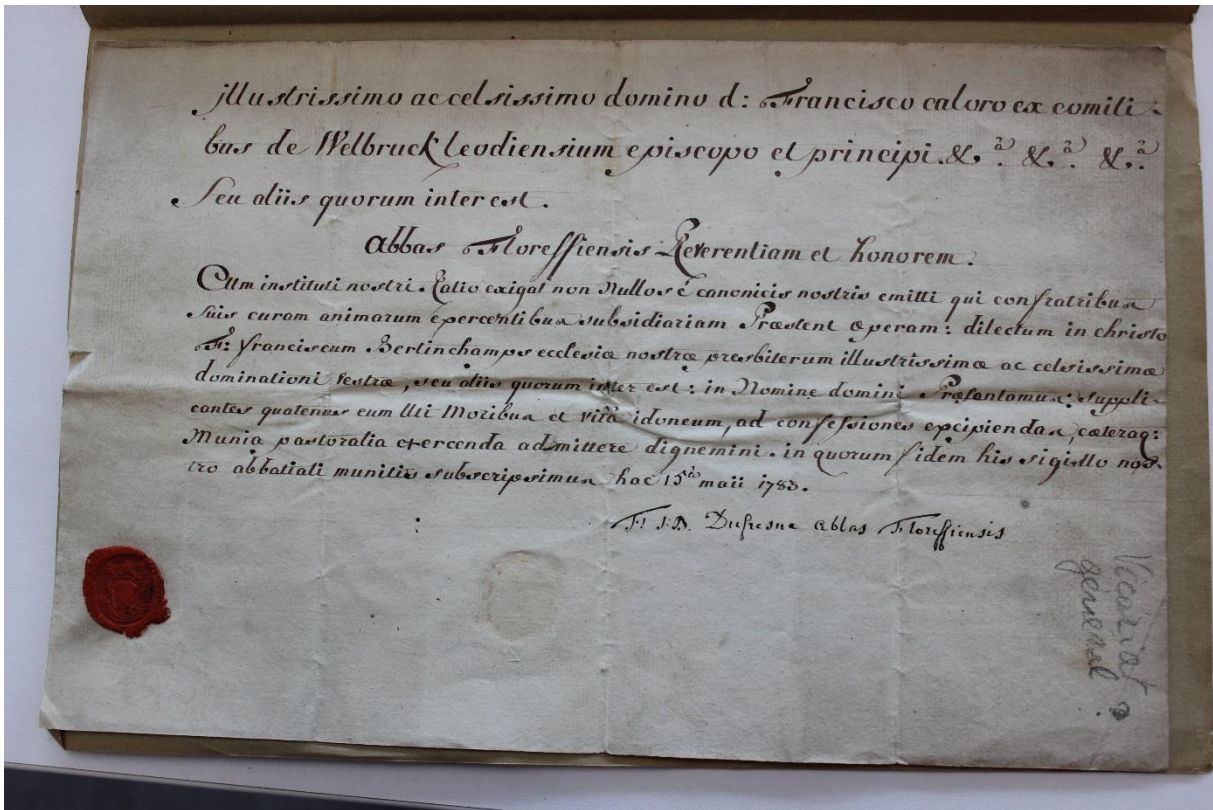 illustrissimo ac celsissimo domino d: Francisco caloro ex comiti-
bus de Welbruck leodiensium episcopo et principi. &.a &.a &.a
Seu aliis quorum inter est.
abbas Floreffiensis Reverentiam et honorem.
Cum instituti nostri Ratio exigat non Nullos é canonicis nostris emitti qui confratribus
suis curam animarum exercentibus subsidiariam Præstent operam: dilectum in christo
F: franciscum Bertinchamps ecclesiæ nostræ presbiterum illustrissimæ ac celsissimæ
dominationi vestræ, seu aliis quorum inter est: in Nomine domini Præsentamus: suppli-
cantes quatenus eum Uti Moribus et vitâ idoneum, ad confessiones excipiendas, cæteraq:
Munia pastoralia exercenda admittere dignemini. in quorum fidem his sigillo nos-
tro abbatiali munitis subscripsimus hac 15tâ maii 1783.
F: J.B. Dufresne abbas Floreffiensis
Vicariat
général ?